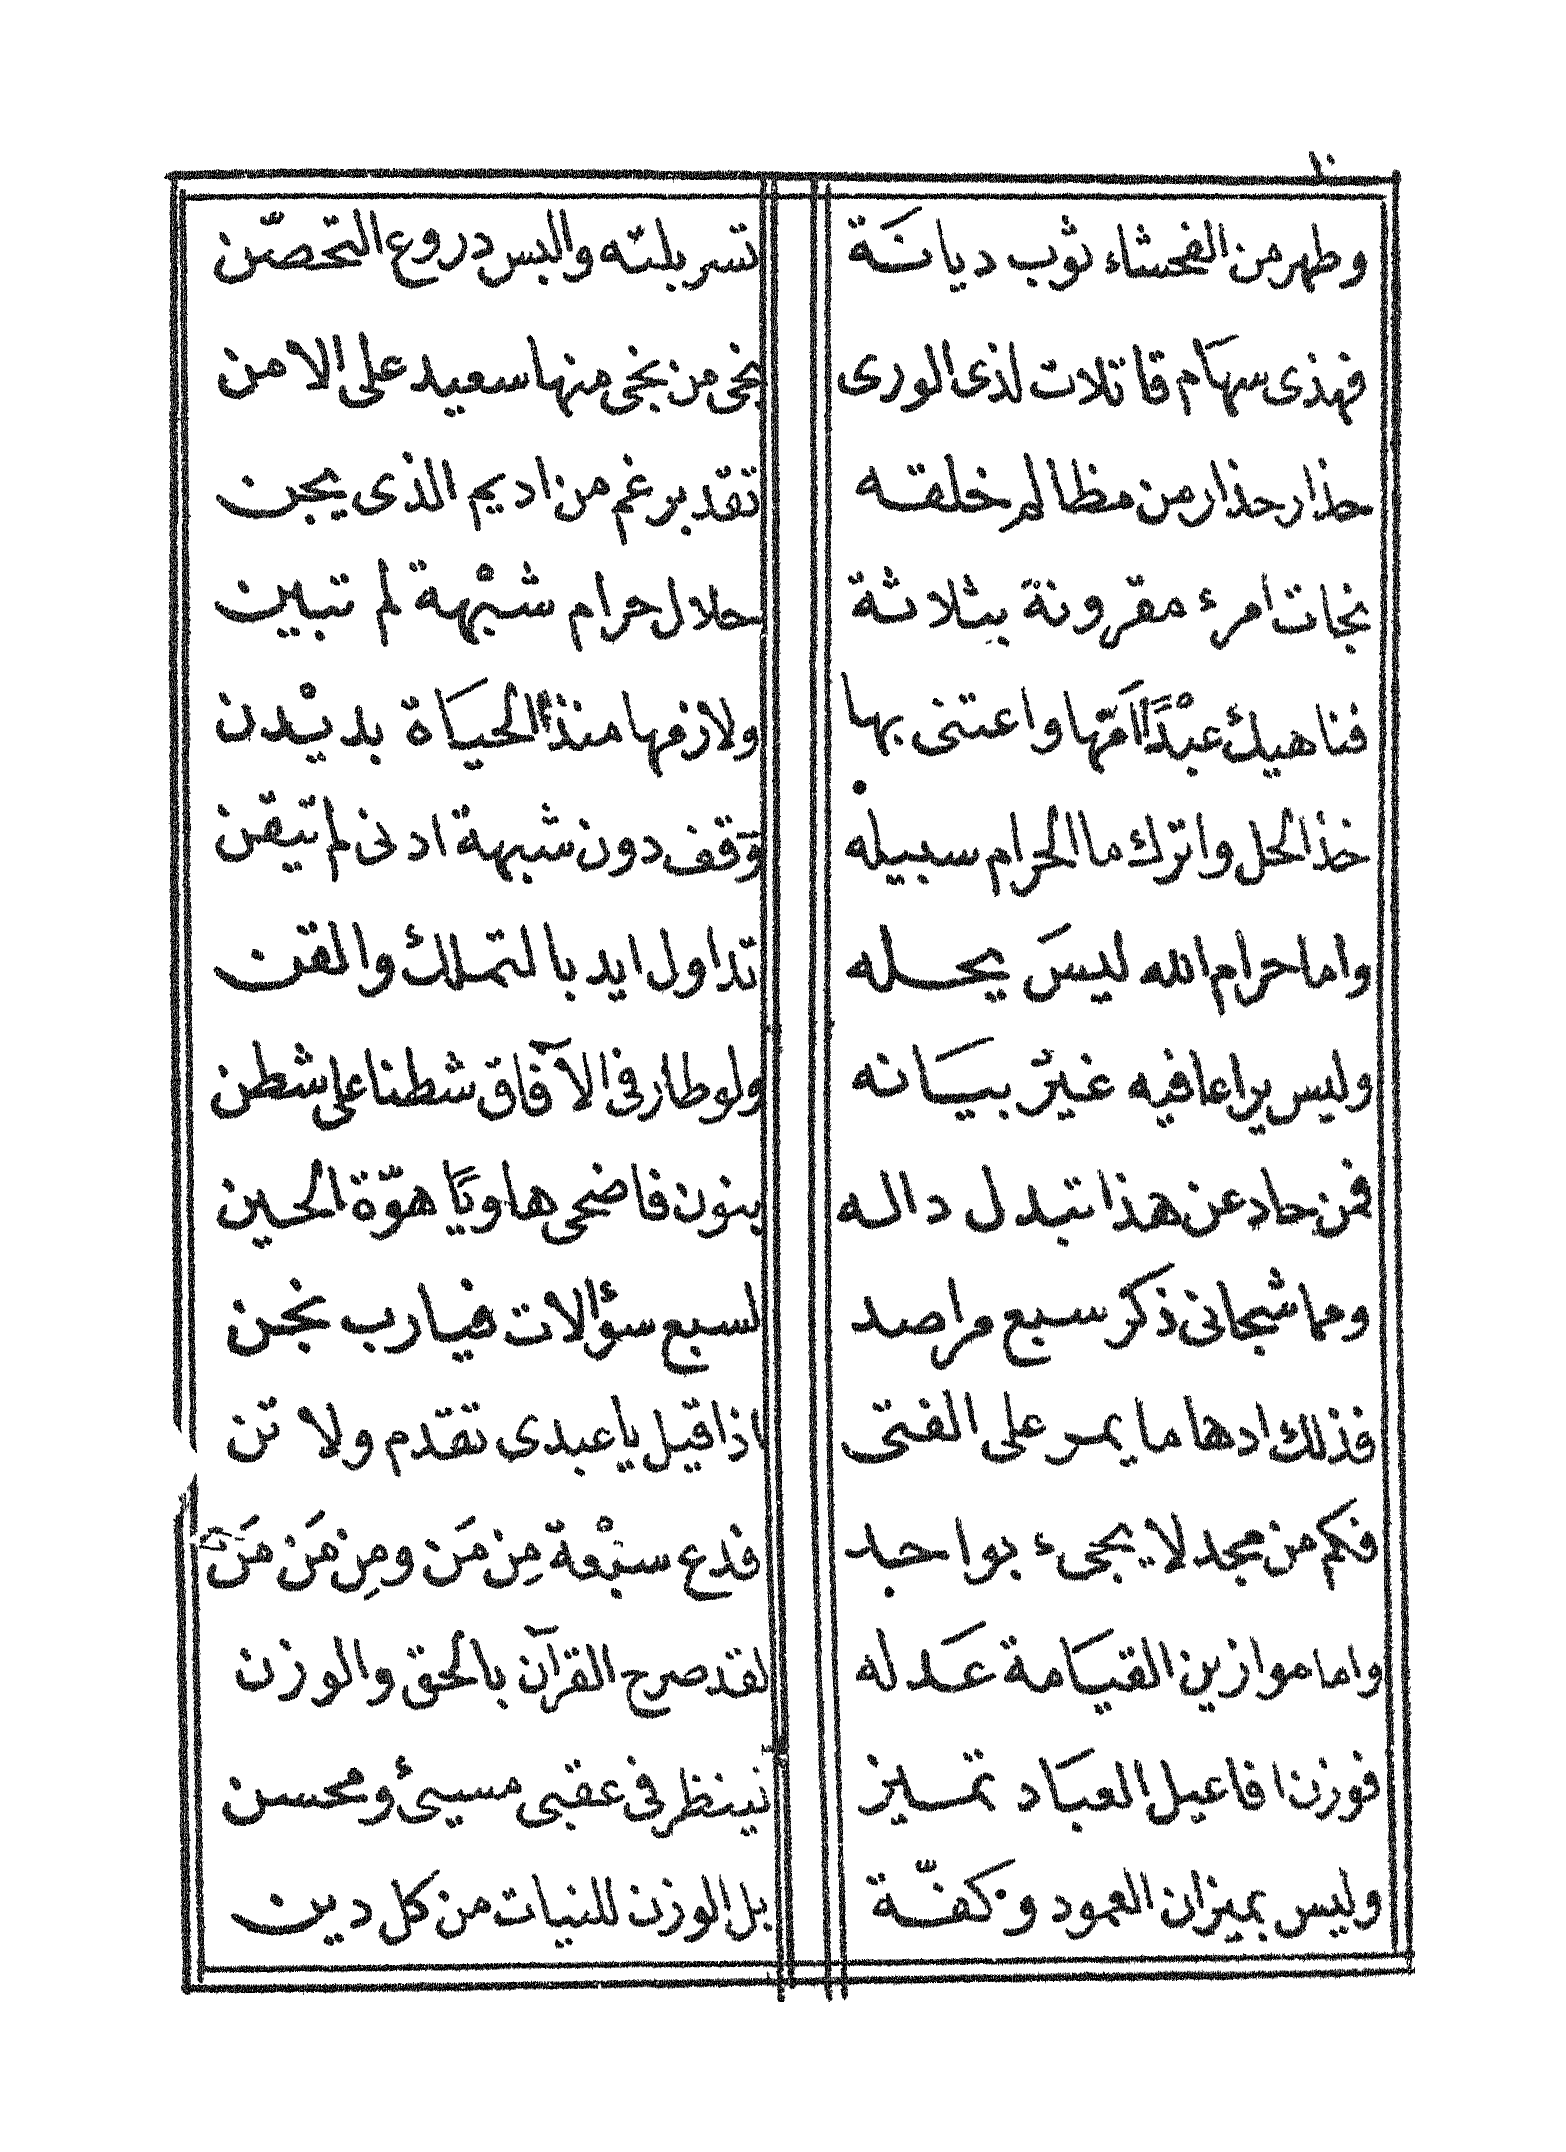 ١٠
وطهر من الفحشاء ثوب ديانَة تسربلته والبس دروع التحصّن
فهذى سهَام قاتلات لذى الورى نجى من نجى منها سعيد على الامن
حذار حذار من مظالم خلقه تقد برغم من اديم الذى يجن
نجات امرء مقرونة بثلاثة حلال حرام شبْهة لم تبين
فناهيك عبْدًا أمَّها واعتنى بها ولازمها منذ الحيَاة بديْدن
خذ الحل واترك ما الحرام سبيله وَقف دون شبهة ادنى لم تيقن
واما حرام الله ليسَ يحله تداول ايد بالتملك والقن
وليس براعا فيه غيرُ بيَانه ولو طار فى الآفاق شطنا على شطن
فمن حاد عن هذا تبدل داله بنون فاضحى هاويًا هوّة الحين
ومما شجانى ذكر سبع مراصد لسبع سؤالات فيارب نجن
فذلك ادها ما يمر على الفتى اذا قيل يا عبدى تقدم ولا تن
فكم من مجد لا يجىء بواحد فدع سبْعة مِن مَن ومِن مَن مَن
واما موازين القيَامة عَدله لقد صرح القرآن بالحق والوزن
فوزن افاعيل العبَاد تميز نينظر فى عقبى مسيئ ومحسن
وليس بميزان العمود وكفّة بل الوزن للنيات من كل دين